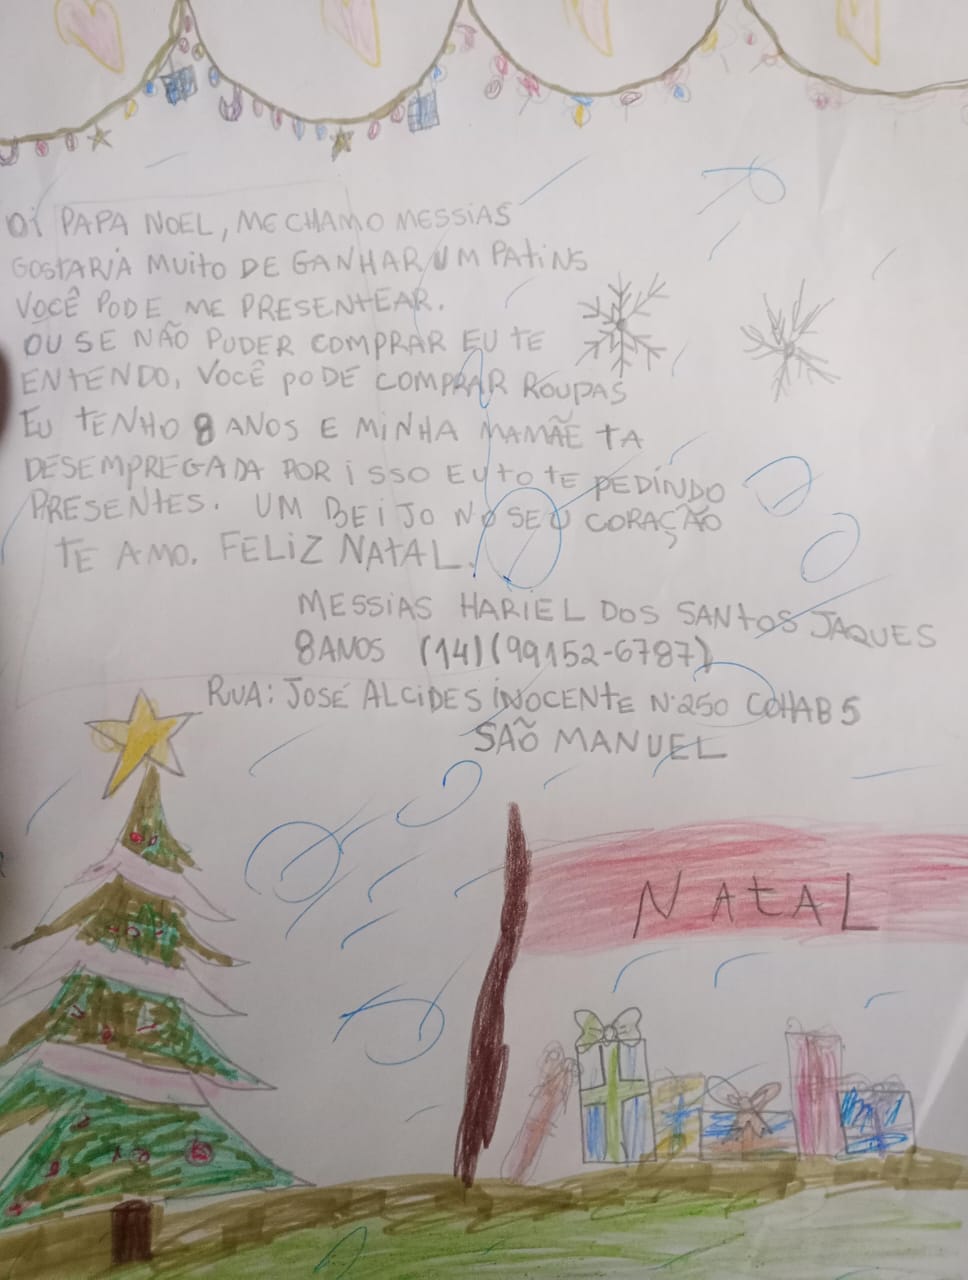 Oi PAPA NOEL, ME CHAMO MESSIAS
GOSTARIA MUITO DE GANHAR UM PATINS
VOCÊ PODE ME PRESENTEAR.
OU SE NÃO PUDER COMPRAR EU TE
ENTENDO, VOCÊ PODE COMPRAR ROUPAS
EU TENHO 8 ANOS E MINHA MAMÃE TA
DESEMPREGADA POR iSSO EU TO TE PEDINDO
PRESENTES. UM BEIJO NO SEU CORAÇÃO
TE AMO. FELIZ NATAL.
MESSIAS HARIEL DOS SANTOS JAQUES
8 ANOS (14)(99152-6787)
RUA: JOSÉ ALCIDES INOCENTE N°250 COHAB 5
SAÕ MANUEL
NATAL